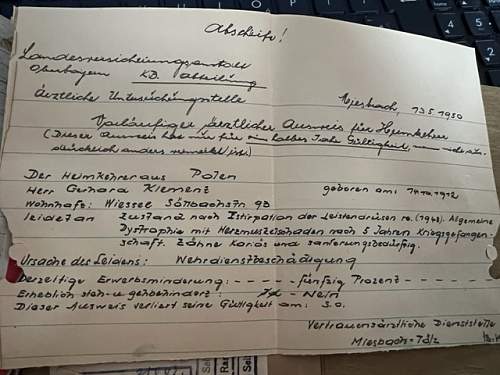 Abschrift!
Landesversicherungsanstalt
Oberbayern K.B. Abteilung
Miesbach, 13.5.1950
ärztliche Untersuchungsstelle
Vorläufiger ärztlicher Ausweis für Heimkehrer
(Dieser Ausweis hat nur für ein halbes Jahr Gültigkeit, wenn nicht aus-
drücklich anders vermerkt ist.)
Der Heimkehrer aus Polen
Herr Gerhard Klement geboren am: 1912
Wohnhaft: Wiessee Söllbachstr 90
leidet an Zustand nach Exstirpation der Leistendrüsen re. (1948). Allgemeine
Dystrophie mit Herzmuskelschaden nach 5 Jahren Kriegsgefangen-
schaft. Zähne kariös und sanierungsbedürftig.
Ursache des Leidens: Wehrdienstbeschädigung
Derzeitige Erwerbsminderung: - - - - - fünfzig Prozent - - - -
Erheblich steh- u. gehbehindert: Ja - Nein
Dieser Ausweis verliert seine Gültigkeit am: s.o.
Vertrauensärztliche Dienststelle
Miesbach-Tölz